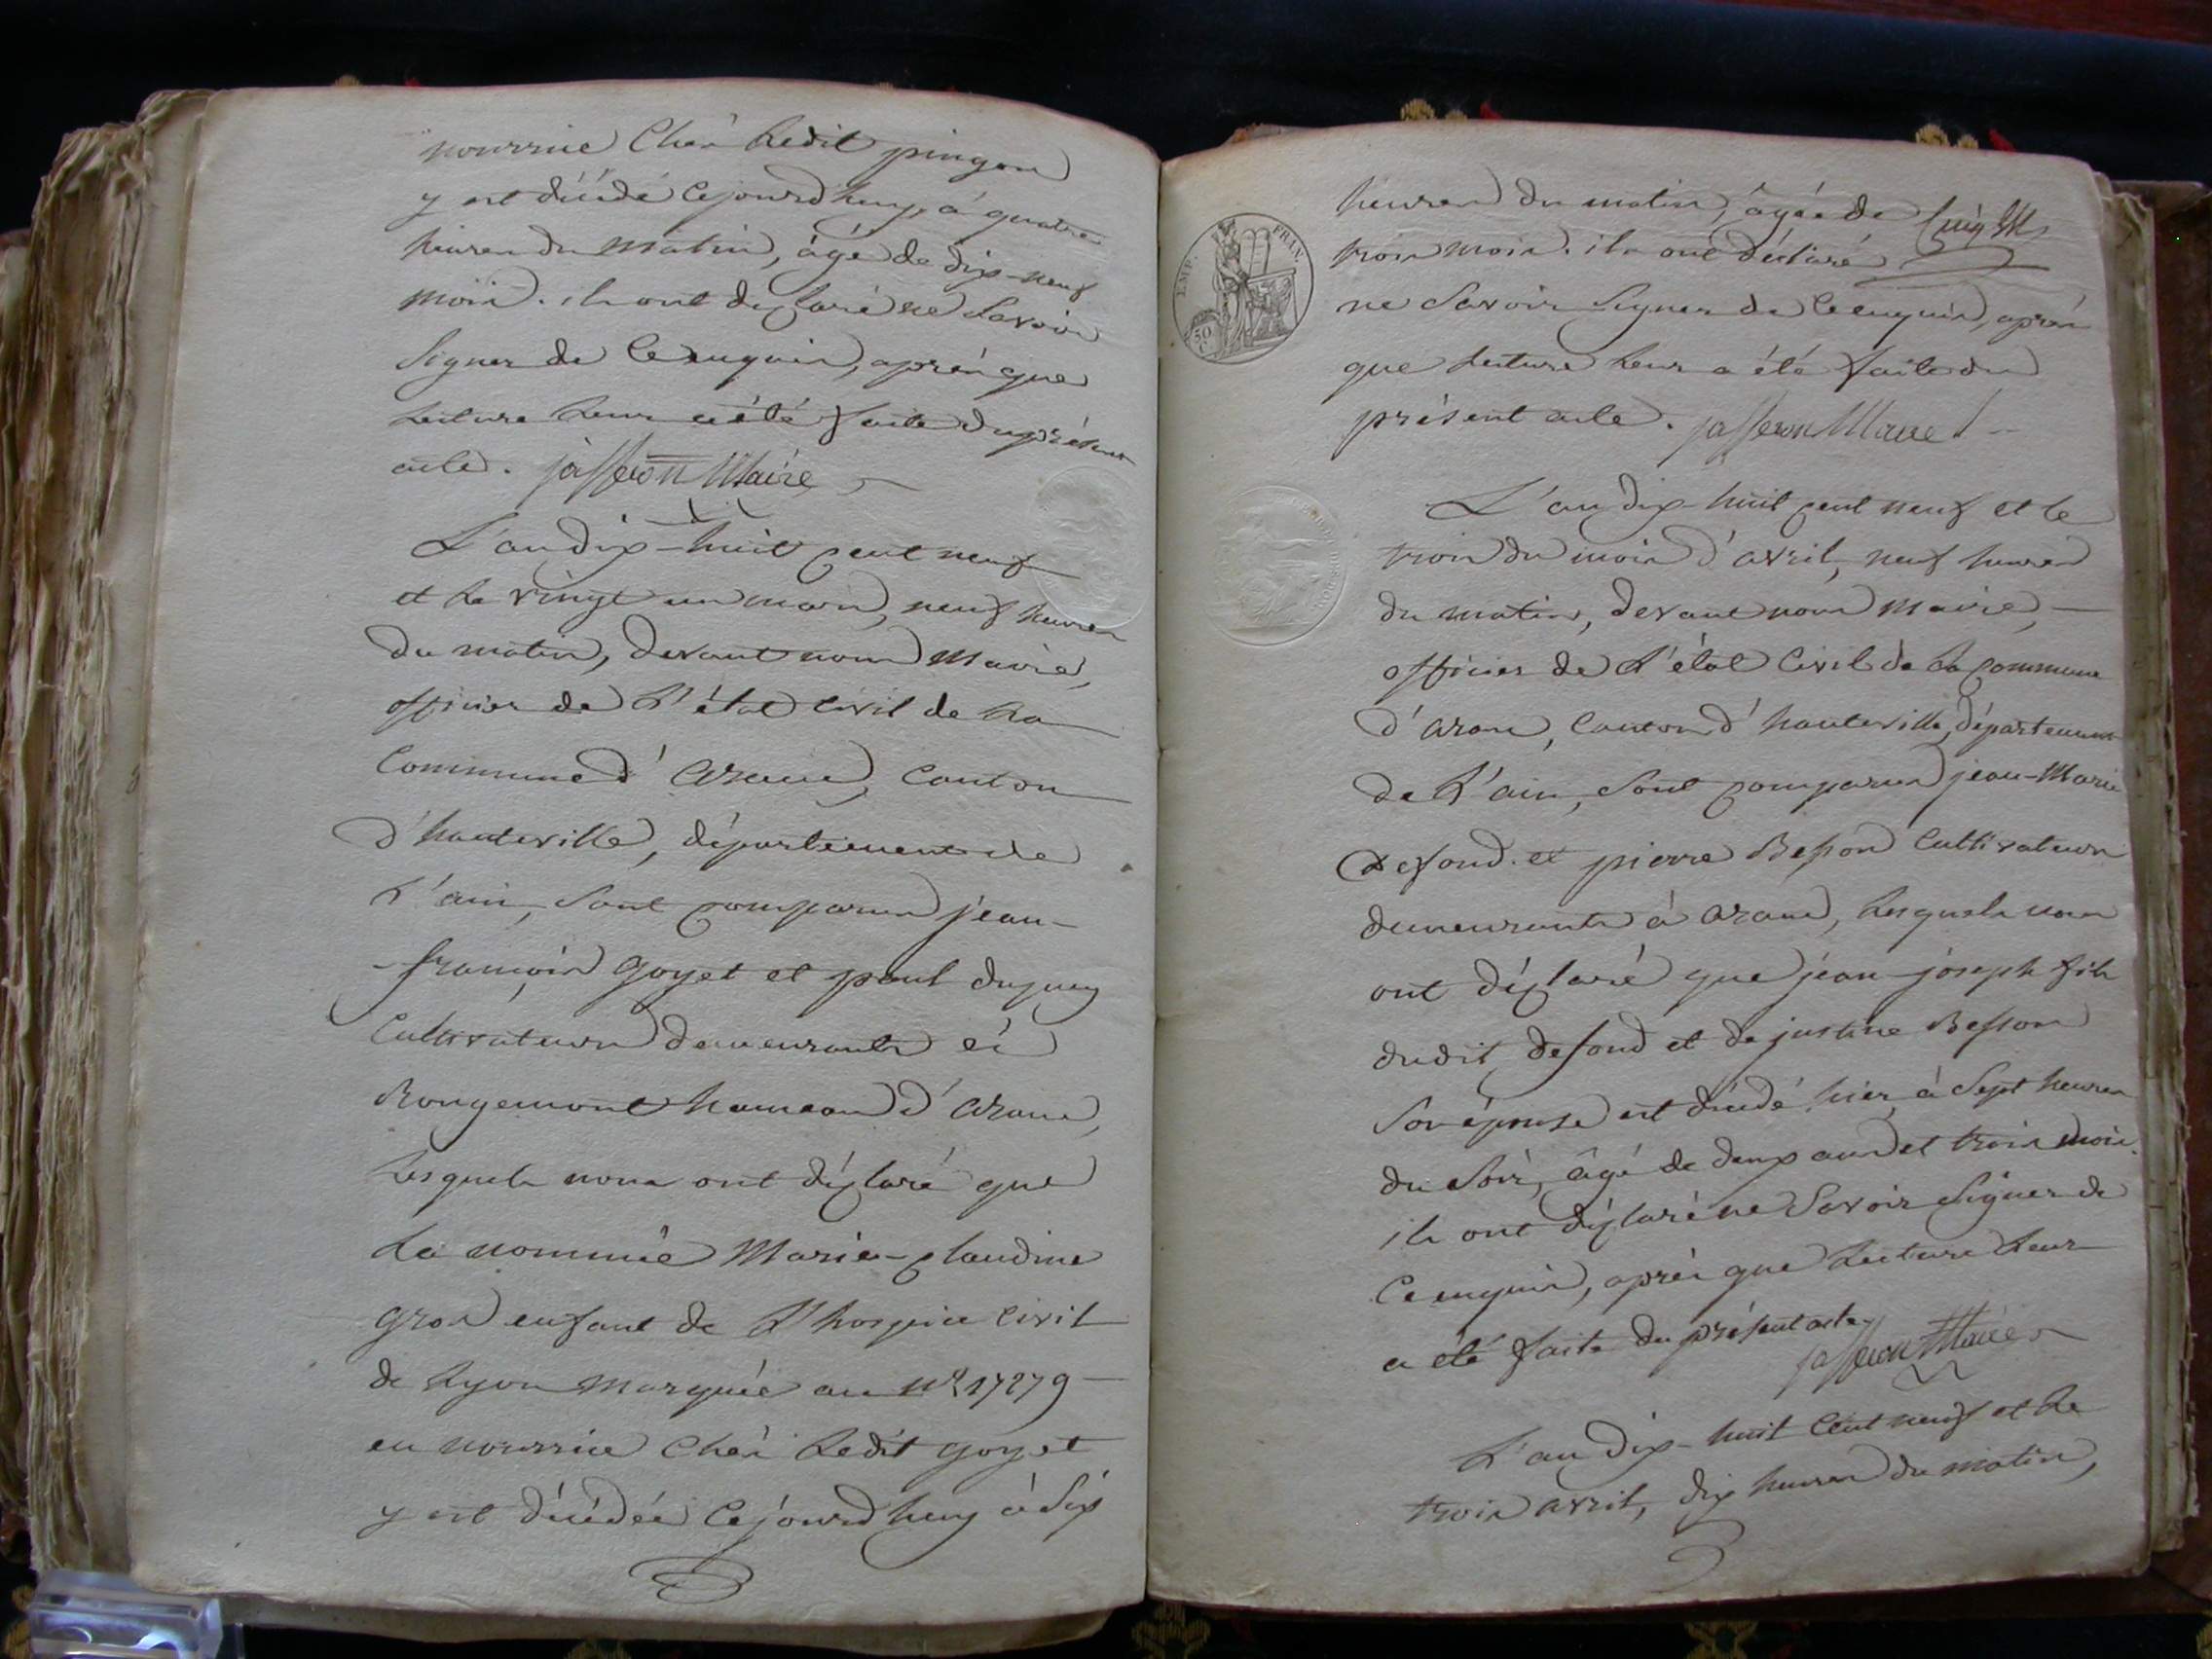 nourrice Chés ledit pingon
y est décédé cejourd'huy, à quatre
heures du matin, âgé de dix-neuf
mois. ils ont déclaré ne savoir
signer de ce enquis, après que
lecture leur a été faite du présent
acte. jasseron Maire
L'an dix-huit cent neuf
et le vingt un mars, neuf heures
du matin, devant nous Maire,
officier de l'état civil de la
Commune d'arane, Canton
d'hauteville, département de
l'ain, sont comparus jean-
-françois goyet et paul dupuy
Cultivateurs demeurants à
Rougemont hameau d'arane,
lesquels nous ont déclaré que
la nommée Marie-claudine
gros enfant de l'hospice civil
de lyon marquée au n.° 17279
en nourrice Chés ledit goyet
y est décédée cejourd'huy à six
EMP. FRAN.
50 C.
heures du matin, âgée de
trois mois. ils ont déclaré
ne savoir signer de ce enquis, après
que lecture leur a été faite du
présent acte. jasseron Maire
L'an dix-huit cent neuf et le
trois du mois d'avril, neuf heures
du matin, devant nous Maire,
officier de l'état civil de la commune
d'arane, Canton d'hauteville, département
de l'ain, sont comparus jean-Marie
defond et pierre Besson Cultivateurs
demeurants à arane, lesquels nous
ont déclaré que jean-joseph fils
dudit defond et de justine Besson
son épouse est décédé hier, à sept heures
du soir, âgé de deux ans et trois mois.
ils ont déclaré ne savoir signer de
ce enquis, après que lecture leur
a été faite du présent acte.
jasseron Maire
L'an dix-huit cent neuf et le
trois avril, dix heures du matin,